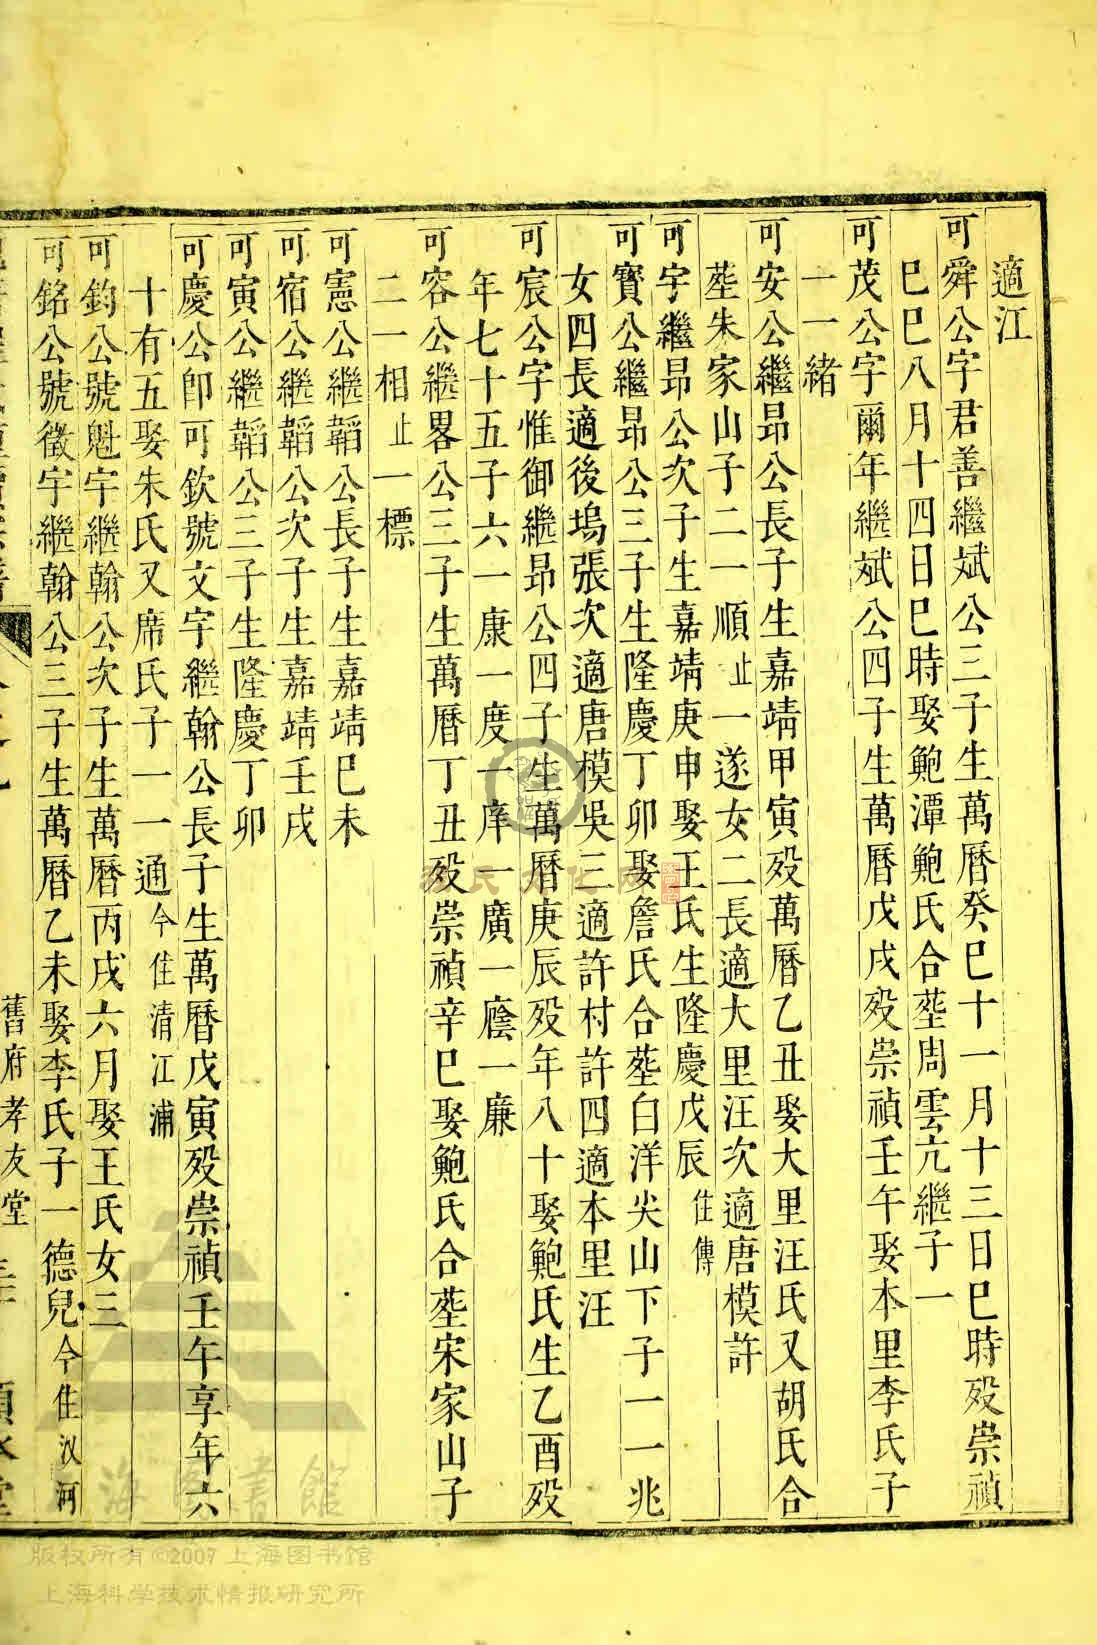 適江
可舜公字君善繼斌公三子生萬曆癸巳十一月十三日巳時歿崇禎
巳巳八月十四日巳時娶鮑潭鮑氏合塟周雲亢繼子一
可茂公字爾年繼斌公四子生萬曆戊戌歿崇禎壬午娶本里李氏子
一一緒
可安公繼昂公長子生嘉靖甲寅歿萬曆乙丑娶大里汪氏又胡氏合
塟朱家山子二一順止一遂女二長適大里汪次適唐模許
可宇繼昂公次子生嘉靖庚申娶王氏生隆慶戊辰住傳
可寳公繼昂公三子生隆慶丁卯娶詹氏合塟白洋尖山下子一一兆
女四長適後塢張次適唐模吳三適許村許四適本里汪
可宸公字惟御繼昂公四子生萬曆庚辰歿年八十娶鮑氏生乙酉歿
年七十五子六一康一度一庠一廣一廕一廉
可容公繼畧公三子生萬曆丁丑歿崇禎辛巳娶鮑氏合塟宋家山子
二一相止一標
可憲公繼韜公長子生嘉靖巳未
可宿公繼韜公次子生嘉靖壬戌
可寅公繼韜公三子生隆慶丁卯
可慶公卽可欽號文宇繼翰公長子生萬曆戊寅歿崇禎壬午享年六
十有五娶朱氏又席氏子一一通今住清江浦
可鈞公號魁宇繼翰公次子生萬曆丙戌六月娶王氏女三
可銘公號徵宇繼翰公三子生萬曆乙未娶李氏子一德兒今住汊河
舊府孝友堂
上海图書館
版权所有©2007上海图书馆
上海科学技术情报研究所